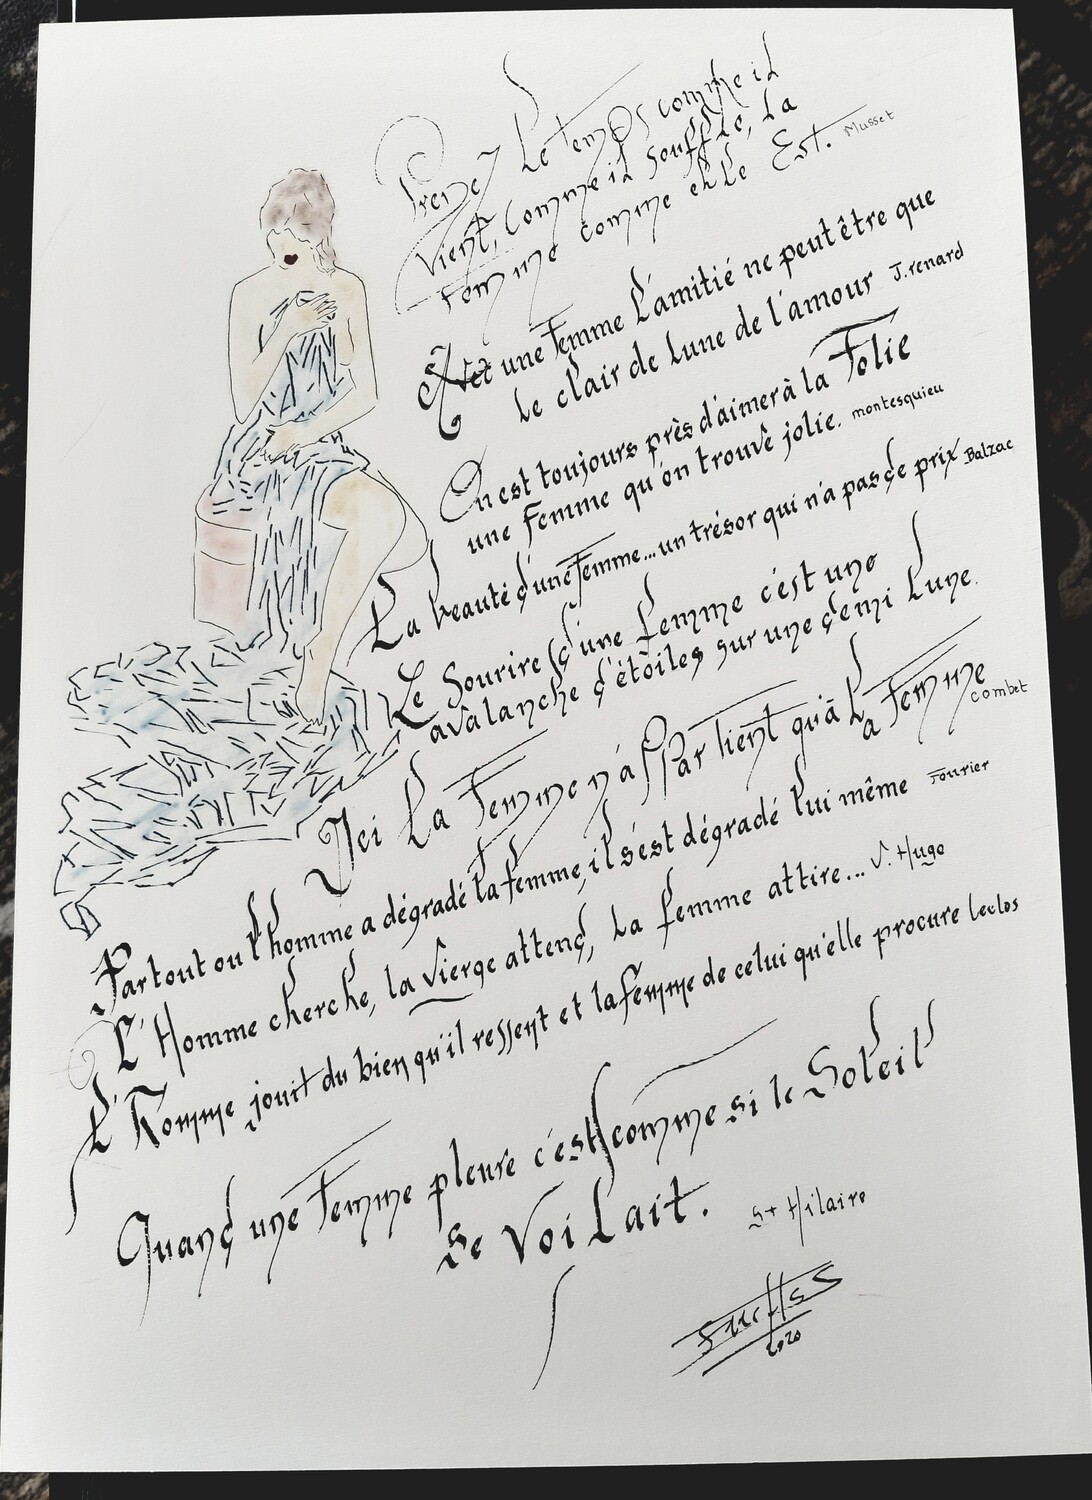 Prenez Le temps comme il
vient, Comme il souffle, La
Femme comme elle Est. Musset
Avec une Femme L'amitié ne peut être que
Le clair de Lune de l'amour J.renard
On est toujours près d'aimer à la Folie
une Femme qu'on trouve jolie. montesquieu
La beauté d'une Femme...un trésor qui n'a pas de prix Balzac
Le Sourire d'une femme c'est une
avalanche d'étoiles sur une demi Lune.
Ici La Femme n'appartient qu'à La Femme
Combet
Partout ou l'homme a dégradé la femme, il s'est dégradé lui même Fourier
L'Homme cherche, la vierge attend, La femme attire... V. Hugo
L'Homme jouit du bien qu'il ressent et la femme de celui qu'elle procure Leclos
Quand une Femme pleure c'est comme si le Soleil
Se Voilait. St Hilaire
2020